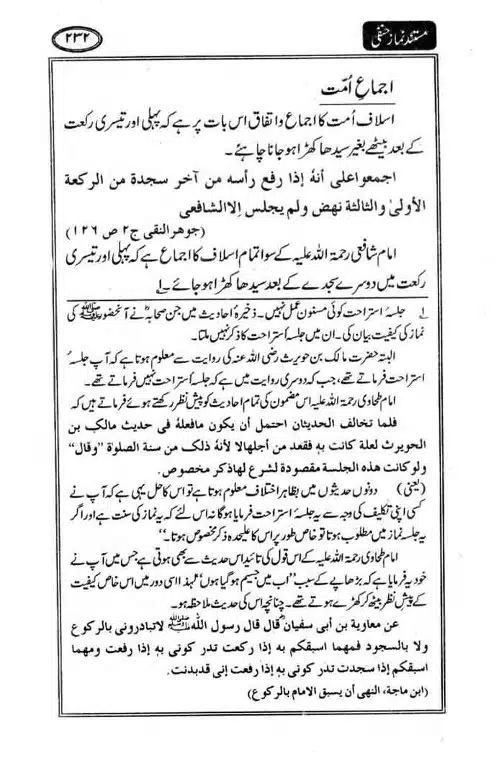 مستند نماز حنفی
۲۳۲
اجماع اُمّت
اسلاف اُمت کا اجماع و اتفاق اس بات پر ہے کہ پہلی اور تیسری رکعت
کے بعد بیٹھے بغیر سیدھا کھڑا ہو جانا چاہئے۔
اجمعوا علی أنهٔ إذا رفع رأسه من آخر سجدة من الركعة
الأولیٰ والثالثة نهض ولم يجلس إلا الشافعی
(جوهر النقی ج۲ ص ۱۲۶)
امام شافعی رحمۃ اللہ علیہ کے سوا تمام اسلاف کا اجماع ہے کہ پہلی اور تیسری
رکعت میں دوسرے سجدے کے بعد سیدھا کھڑا ہو جائے۔ ۱؎
۱؎ جلسۂ استراحت کوئی مسنون عمل نہیں۔ ذخیرۂ احادیث میں جن صحابہؓ نے آنحضور ﷺ کی
نماز کی کیفیت بیان کی۔ ان میں جلسۂ استراحت کا ذکر نہیں ملتا۔
البتہ حضرت مالک بن حویرث رضی اللہ عنہ کی روایت سے معلوم ہوتا ہے کہ آپ جلسۂ
استراحت فرماتے تھے، جب کہ دوسری روایت میں ہے کہ جلسۂ استراحت نہیں فرماتے تھے۔
امام طحاوی رحمۃ اللہ علیہ اس مضمون کی تمام احادیث کو پیش نظر رکھتے ہوئے فرماتے ہیں کہ
فلما تخالف الحديثان احتمل أن يكون مافعلهٔ فی حديث مالک بن
الحويرث لعلة كانت به فقعد من أجلها لا لأنهٔ ذلک من سنة الصلوٰة "وقال"
ولو كانت هذه الجلسة مقصودة لشرع لها ذكر مخصوص.
(یعنی) دونوں حدیثوں میں بظاہر اختلاف معلوم ہوتا ہے تو اس کا حل یہی ہے کہ آپ نے
کسی اپنی تکلیف کی وجہ سے یہ جلسۂ استراحت فرمایا ہوگا نہ اس لئے کہ یہ نماز کی سنت ہے اور اگر
یہ جلسہ نماز میں مطلوب ہوتا تو خاص طور پر اس کا علیحدہ ذکر مخصوص ہوتا۔"
امام طحاوی رحمۃ اللہ علیہ کے اس قول کی تائید اس حدیث سے بھی ہوتی ہے جس میں آپ نے
خود یہ فرمایا ہے کہ بڑھاپے کے سبب "اب میں جسیم ہو گیا ہوں" لہٰذا اسی دور میں اس خاص کیفیت
کے پیش نظر بیٹھ کر کھڑے ہوتے تھے۔ چنانچہ اس کی حدیث ملاحظہ ہو۔
عن معاوية بن أبی سفيانؓ قال قال رسول اللہ ﷺ لا تبادرونی بالركوع
ولا بالسجود فمهما اسبقكم به إذا ركعت تدر كونی به إذا رفعت ومهما
اسبقكم إذا سجدت تدر كونی به إذا رفعت إنی قدبدنت.
(ابن ماجة، النهی أن يسبق الامام بالركوع)